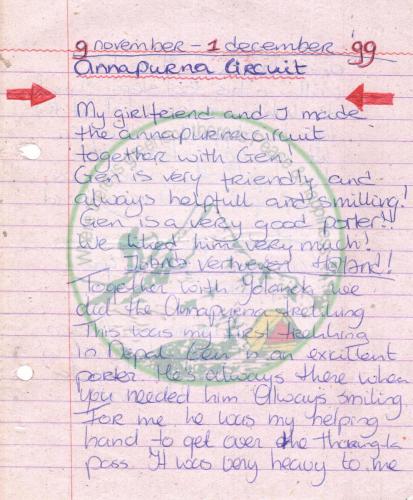 9 november - 1 december '99
Annapurna Circuit
My girlfeiend and I made
the annapurna circuit
together with Gen!
Gen is very friendly and
always helpfull and smiling!
Gen is a very good porter!!
We liked him very mach!
Holland!
Together with Yolanda we
did the Annapurna
This was my first trekking
in Nepal. Gen is an excillent
porter. He's always there when
you needed him. Always smiling
For me he was my helping
hand to get over the thorangla
pass. It was very heavy to me